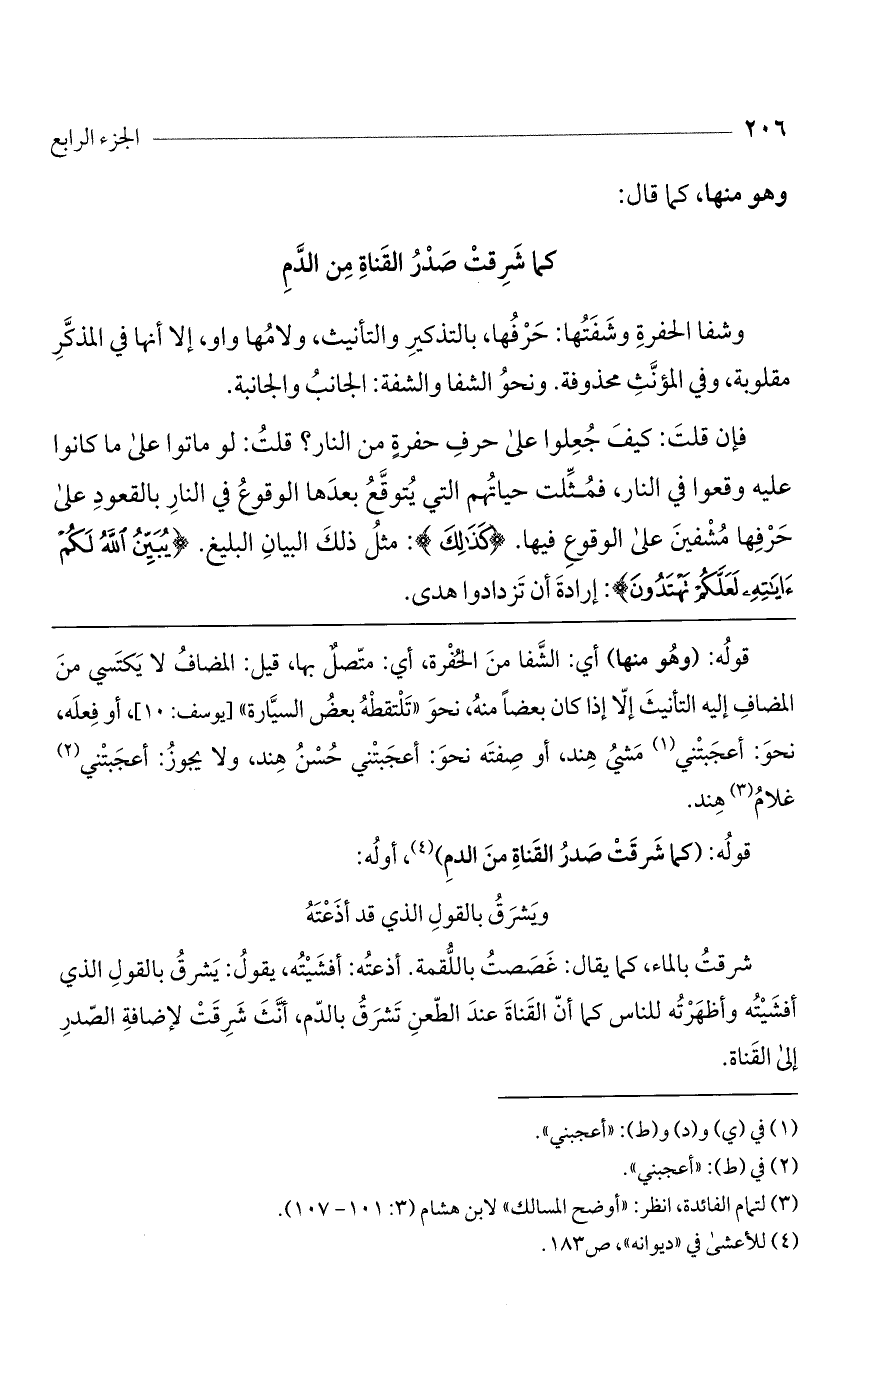 ٢٠٦ الجزء الرابع
وهو منها، كما قال:
كما شَرِقتْ صَدْرُ القَناةِ مِن الدَّمِ
وشفا الحفرةِ وشَفَتُها: حَرْفُها، بالتذكيرِ والتأنيث، ولامُها واو، إلا أنها في المذكَّرِ
مقلوبة، وفي المؤنَّثِ محذوفة. ونحوُ الشفا والشفة: الجانبُ والجانبة.
فإن قلتَ: كيفَ جُعِلوا على حرفِ حفرةٍ من النار؟ قلتُ: لو ماتوا على ما كانوا
عليه وقعوا في النار، فمُثِّلت حياتُهم التي يُتوقَّعُ بعدَها الوقوعُ في النارِ بالقعودِ على
حَرْفِها مُشْفينَ على الوقوعِ فيها. ﴿كَذَٰلِكَ﴾: مثلُ ذلكَ البيانِ البليغ. ﴿يُبَيِّنُ ٱللَّهُ لَكُمْ
ءَايَٰتِهِۦ لَعَلَّكُمْ تَهْتَدُونَ﴾: إرادةَ أن تَزدادوا هدى.
قولُه: (وهُو منها) أي: الشَّفا منَ الحُفْرة، أي: متّصلٌ بها، قيل: المضافُ لا يَكتَسي منَ
المضافِ إليه التأنيثَ إلّا إذا كان بعضاً منهُ، نحوَ «تَلْتقطهُ بعضُ السيَّارة» [يوسف: ١٠]، أو فِعلَه،
نحوَ: أعجَبتْني(١) مَشيُ هِند، أو صِفتَه نحوَ: أعجَبتْني حُسْنُ هِند، ولا يجوزُ: أعجَبتْني(٢)
غلامُ(٣) هِند.
قولُه: (كما شَرِقَتْ صَدرُ القَناةِ منَ الدمِ)(٤)، أولُه:
ويَشرَقُ بالقولِ الذي قد أذَعْتَهُ
شرقتُ بالماء، كما يقال: غَصَصتُ باللُّقمة. أذعتُه: أفشَيْتُه، يقولُ: يَشرقُ بالقولِ الذي
أفشَيْتُه وأظهَرْتُه للناس كما أنّ القَناةَ عندَ الطّعنِ تَشرَقُ بالدّم، أنَّثَ شَرِقَتْ لإضافةِ الصّدرِ
إلى القَناة.
(١) في (ي) و(د) و(ط): «أعجبني».
(٢) في (ط): «أعجبني».
(٣) لتمام الفائدة، انظر: «أوضح المسالك» لابن هشام (٣: ١٠١ - ١٠٧).
(٤) للأعشى في «ديوانه»، ص١٨٣.